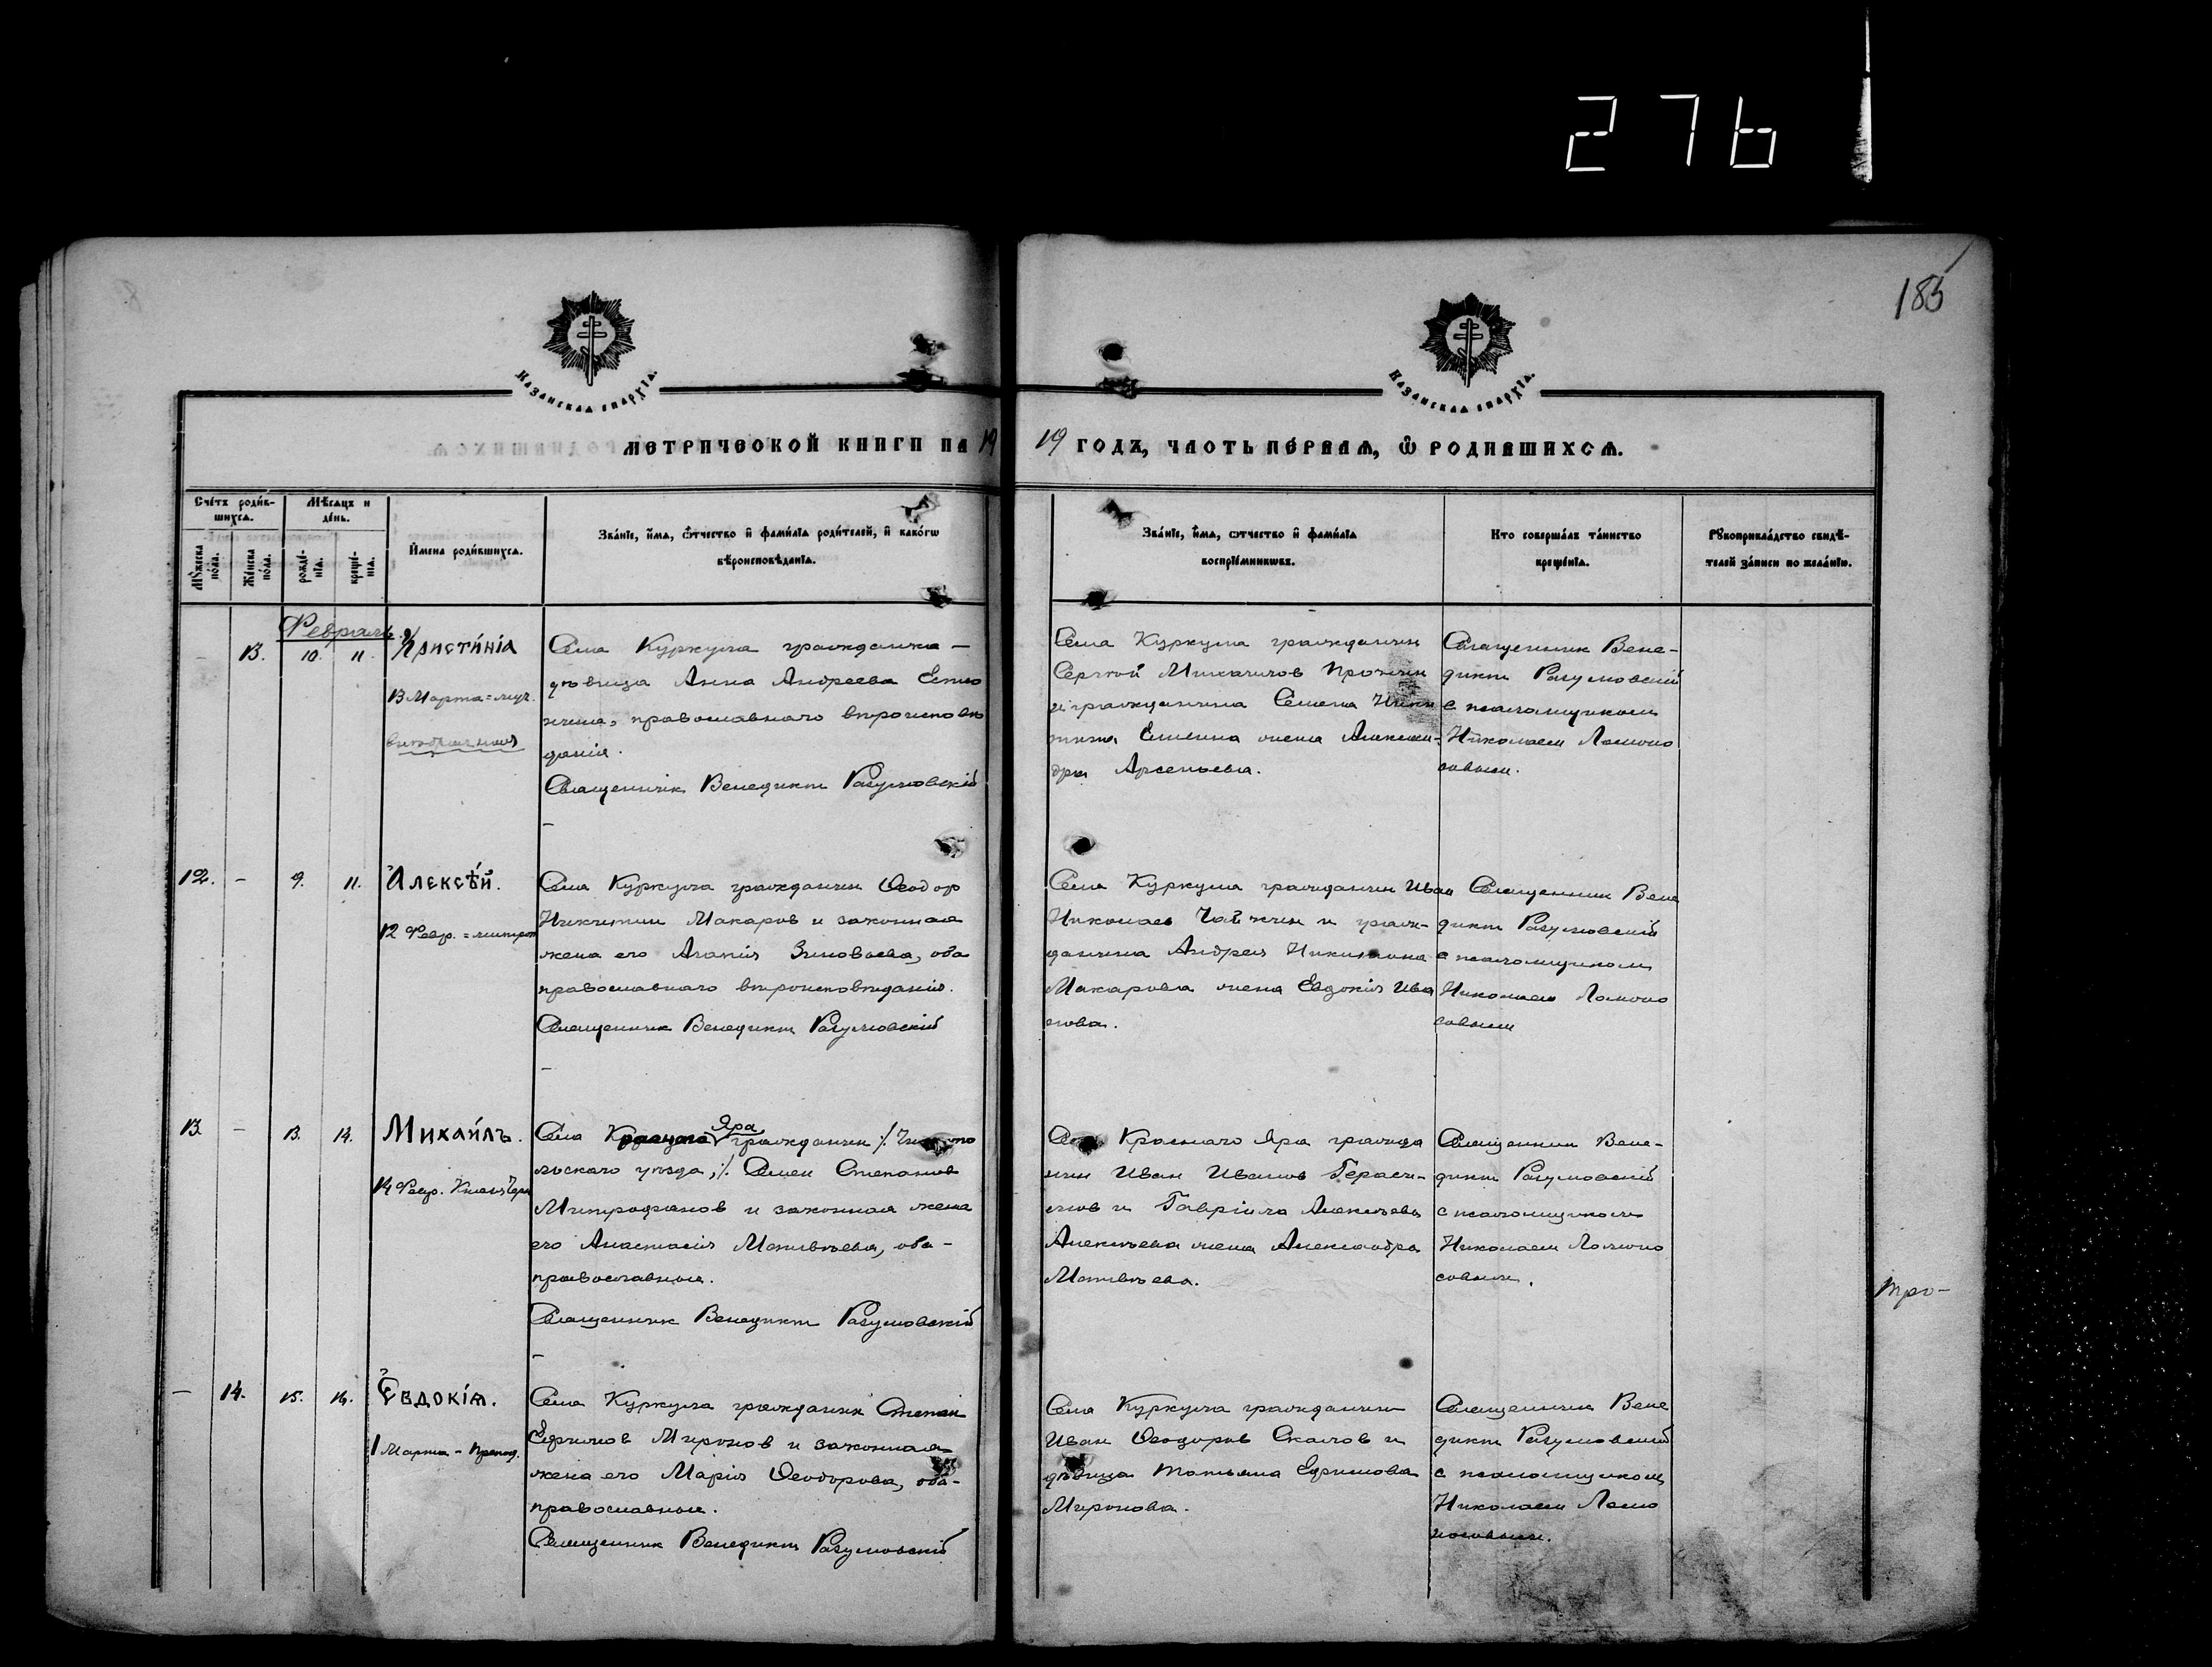 276
185
КАЗАНСКАѦ ЕПАРХІѦ.
КАЗАНСКАѦ ЕПАРХІѦ.
МЕТРИЧЕСКОЙ КНИГИ НА 19
19 ГОДЪ, ЧАСТЬ ПЕ́РВАѦ, Ѡ҆ РОДИВШИХСѦ.
Сче́тъ роди́в-
шихсѧ.
Мꙋ́жеска по́ла.
Же́нска по́ла.
Мѣ́сѧцъ и
де́нь.
рожде́-
нїѧ.
креще́-
нїѧ.
И҆мена роди́вшихсѧ.
Зва́нїе, и҆́мѧ, ѻ҆́тчество и҆ фами́лїѧ роди́телей, и҆ како́гѡ
вѣроисповѣ́данїѧ.
Зва́нїе, и҆́мѧ, ѻ҆́тчество и҆ фами́лїѧ
воспрїе́мникѡвъ.
Кто̀ соверша́лъ та́инство
креще́нїѧ.
Рꙋкоприкла́дство свидѣ́-
телей за́писи по жела́нїю.
Февраль.
13. 10. 11. Христи́нія
13 Марта = муч.
внѣбрачная
Села Куркула гражданка —
дѣвица Анна Андреева
православнаго вѣроисповѣ
данія.
Священник Венедикт Разумовскій
Села Куркула гражданин
Сергѣй Михаилов
и гражданина Семена Ники
жена Алексан-
дра Арсеньева.
Священник Вене-
дикт Разумовский
с псаломщиком
Николаем Ломоно
совым.
12. – 9. 11. А҆лексѣ́й.
12 Февр. = митроп
Села Куркула гражданин Ѳеодор
Никитин Макаров и законная
жена его Агапія Зиновьева, оба
православнаго вѣроисповѣданія.
Священник Венедикт Разумовскій
Села Куркула гражданин Иван
Николаев Чайкин и граж-
данина Андрея Никитина
Макарова жена Евдокія Ива
нова.
Священник Вене
дикт Разумовскій
с псаломщиком
Николаем Ломоно
совым
13 – 13. 14. Михаи́лъ.
14 Февр. Князь Черн
Села Краснаго Яра гражданин /. Чисто
польскаго уѣзда, /. Семен Степанов
Митрофанов и законная жена
его Анастасія Матвѣева, оба –
православные.
Священник Венедикт Разумовскій
Села Краснаго Яра гражда
нин Иван Иванов Гераси-
мов и Гавріила Алексѣева
Алексѣева жена Александра
Матвѣева.
Священник Вене-
дикт Разумовскій
с псаломщиком
Николаем Ломоно
совым.
тро-
– 14. 15. 16. Є҆вдокі́ѧ.
1 Марта – Препод.
Села Куркула гражданин Степан
Ефимов Миронов и законная
жена его Марія Ѳеодорова, оба-
православные.
Священник Венедикт Разумовскій
Села Куркула гражданин
Иван Ѳеодоров Скалов и
дѣвица Татьяна Ефимова
Миронова.
Священник Вене
дикт Разумовский
с псаломщиком
Николаем Ломо
носовым.